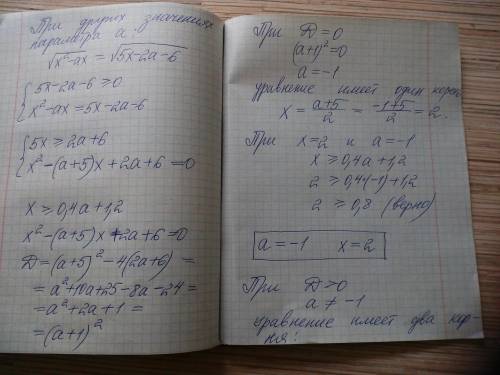 При других значениях
параметра a:
√x²-ax = √5x-2a-6
{ 5x-2a-6 ≥ 0
x²-ax = 5x-2a-6
{ 5x ≥ 2a+6
x²-(a+5)x+2a+6=0
x ≥ 0,4a+1,2
x²-(a+5)x+2a+6=0
D=(a+5)²-4(2a+6) =
= a²+10a+25-8a-24 =
= a²+2a+1 =
= (a+1)²
При D=0
(a+1)²=0
a=-1
уравнение имеет один корень
x = (a+5)/2 = (-1+5)/2 = 2.
При x=2 и a=-1
x ≥ 0,4a+1,2
2 ≥ 0,4·(-1)+1,2
2 ≥ 0,8 (верно)
a=-1 x=2
При D>0
a ≠ -1
уравнение имеет два кор-
ня: